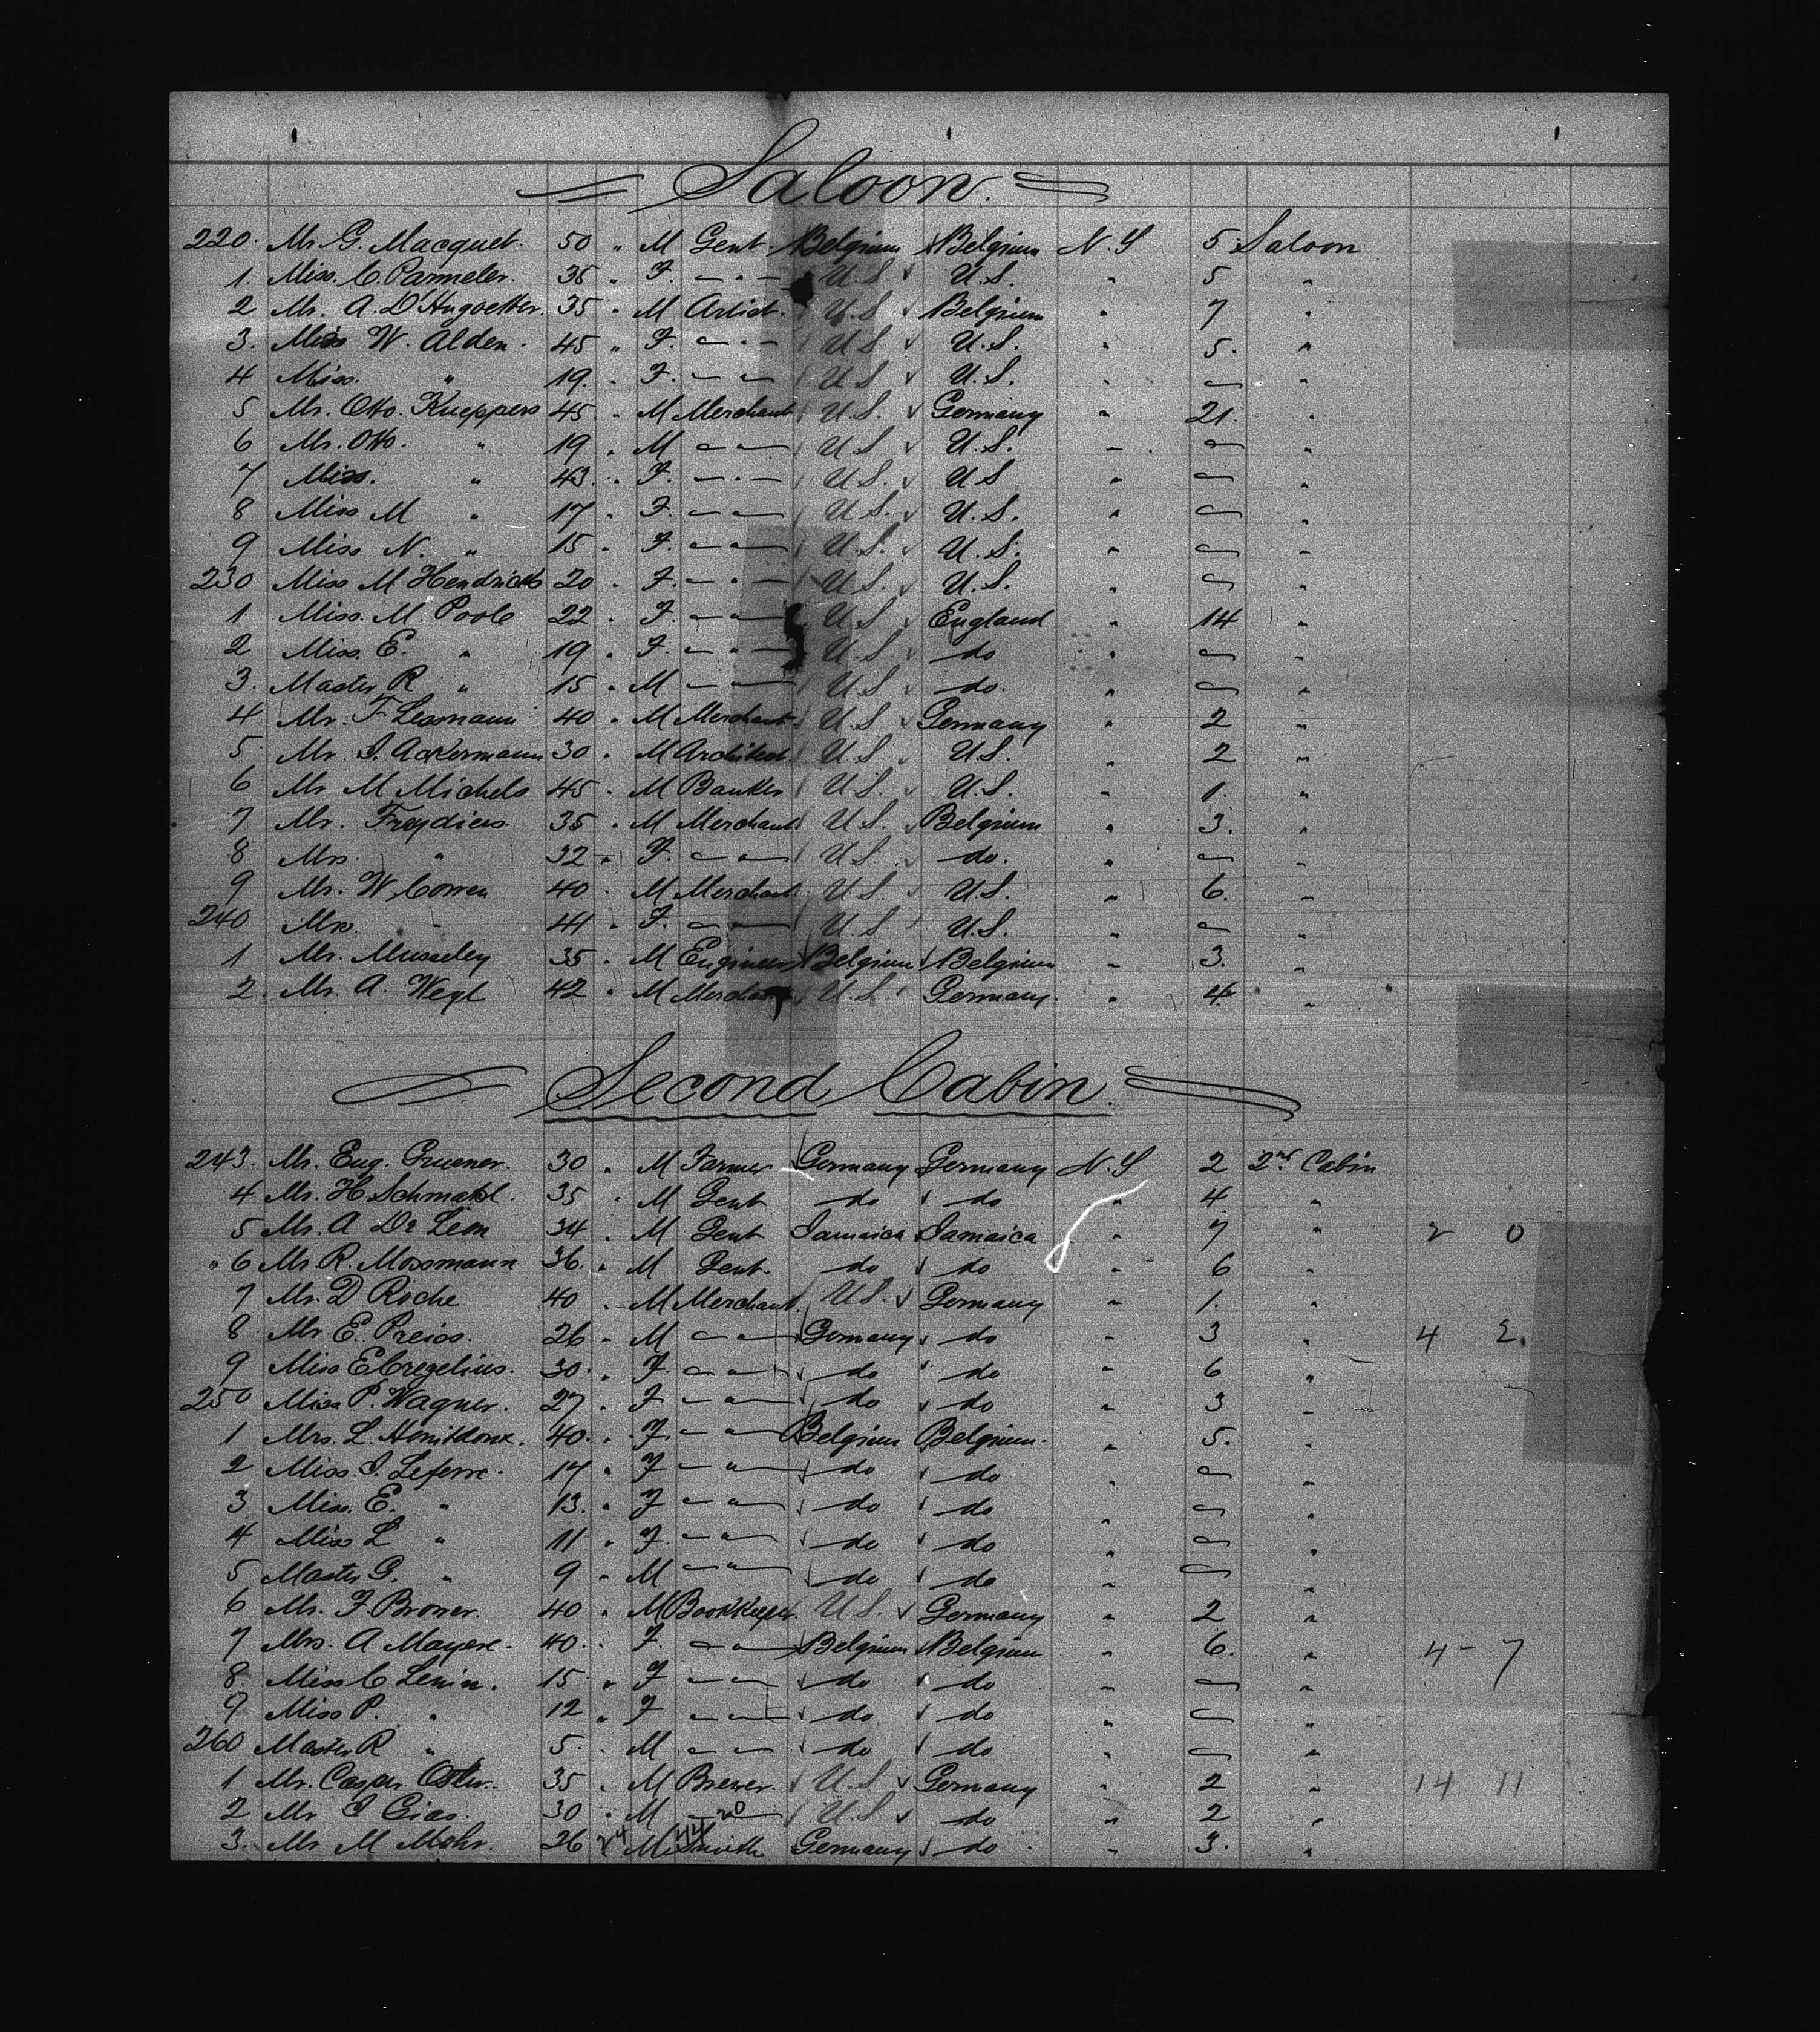 Saloon.
220. Mr G. Macquet. 50 " M Gent. Belgium Belgium N.Y 5 Saloon
1. Miss. C. Parmeler. 36 " F. — " — U.S U.S. " 5 "
2 Mr. A. D'Hugoetter. 35 " M Artist. U.S Belgium " 7 "
3. Miss W. Alden. 45 " F. — " — U S U.S. " 5. "
4 Miss. " 19. " F. — " — U S U.S. " — "
5 Mr. Otto. Kueppers 45 " M Merchant U.S. Germany " 21. "
6 Mr. Otto. " 19 " M — " — U S U.S. " — "
7 Miss. " 43 " F. — " — U S. U.S " — "
8 Miss M " 17 " F. — " — U S. U.S. " — "
9 Miss N. " 15 " F. — " — U.S. U.S. " — "
230 Miss M Hendricks 20 " F. — " — U.S. U.S. " — "
1 Miss. M. Poole 22 " F. — " — U S England " 14 "
2 Miss. E. " 19 " F. — " — U S do " — "
3. Master R " 15 " M — " — U S do. " — "
4 Mr. F Lesmann 40 " M Merchant. U S Germany " 2 "
5 Mr. I. Ackermann 30 " M Architect U S U.S. " 2 "
6 Mr M Michels 45 " M Banker U.S. U.S. " 1. "
7 Mr. Freydiers 35 " M Merchant U S. Belgium " 3. "
8 Mrs. " 32 " F. — " — U S. do. " — "
9 Mr. W Cowen 40 " M Merchant U S. U.S. " 6. "
240 Mrs. " 41 " F. — " — U S U.S. " — "
1 Mr. Musseley 35 " M Engineer Belgium Belgium " 3. "
2. Mr. A. Wegl 42 " M Merchant U.S. Germany. " 4 "
Second Cabin.
243. Mr. Eug. Gruener. 30 " M Farmer Germany Germany N.Y 2 2nd Cabin
4 Mr. H Schmahl. 35 " M Gent do do " 4 "
5 Mr. A De Leon 34 " M Gent Jamaica Jamaica " 7 " 2 0
6 Mr R. Mossmann 36. " M Gent. do do " 6 "
7 Mr. D Roche 40 " M Merchant. U S. Germany " 1. "
8 Mr. E. Preiss. 26 " M — " — Germany do " 3 " 4 2.
9 Miss E Cregelius. 30 " F — " — do do " 6 "
250 Miss P. Wagner. 27 " F — " — do do " 3 "
1 Mrs. L. 40. " F — " — Belgium Belgium. " 5. "
2 Miss. I. Lefevre. 17 " F — " — do do " — "
3 Miss. E. " 13. " F — " — do do " — "
4 Miss L " 11 " F. — " — do do " — "
5 Master G. " 9 " M — " — do do " — "
6 Mr. F Broner. 40 " M Bookkeeper. U S. Germany " 2 "
7 Mrs. A Mayere. 40. " F. — " — Belgium Belgium " 6. " 4 - 7
8 Miss C Lenin. 15 " F — " — do do " — "
9 Miss P. " 12 " F — " — do do " — "
260 Master R " 5. " M — " — do do " — "
1 Mr. Casper Oster. 35 " M Brewer. U.S Germany " 2 " 14 11
2 Mr I Gias. 30 " M — 20 — U.S do " 2 "
3. Mr M Mohr. 26 24 M 44 Smith Germany do " 3. "